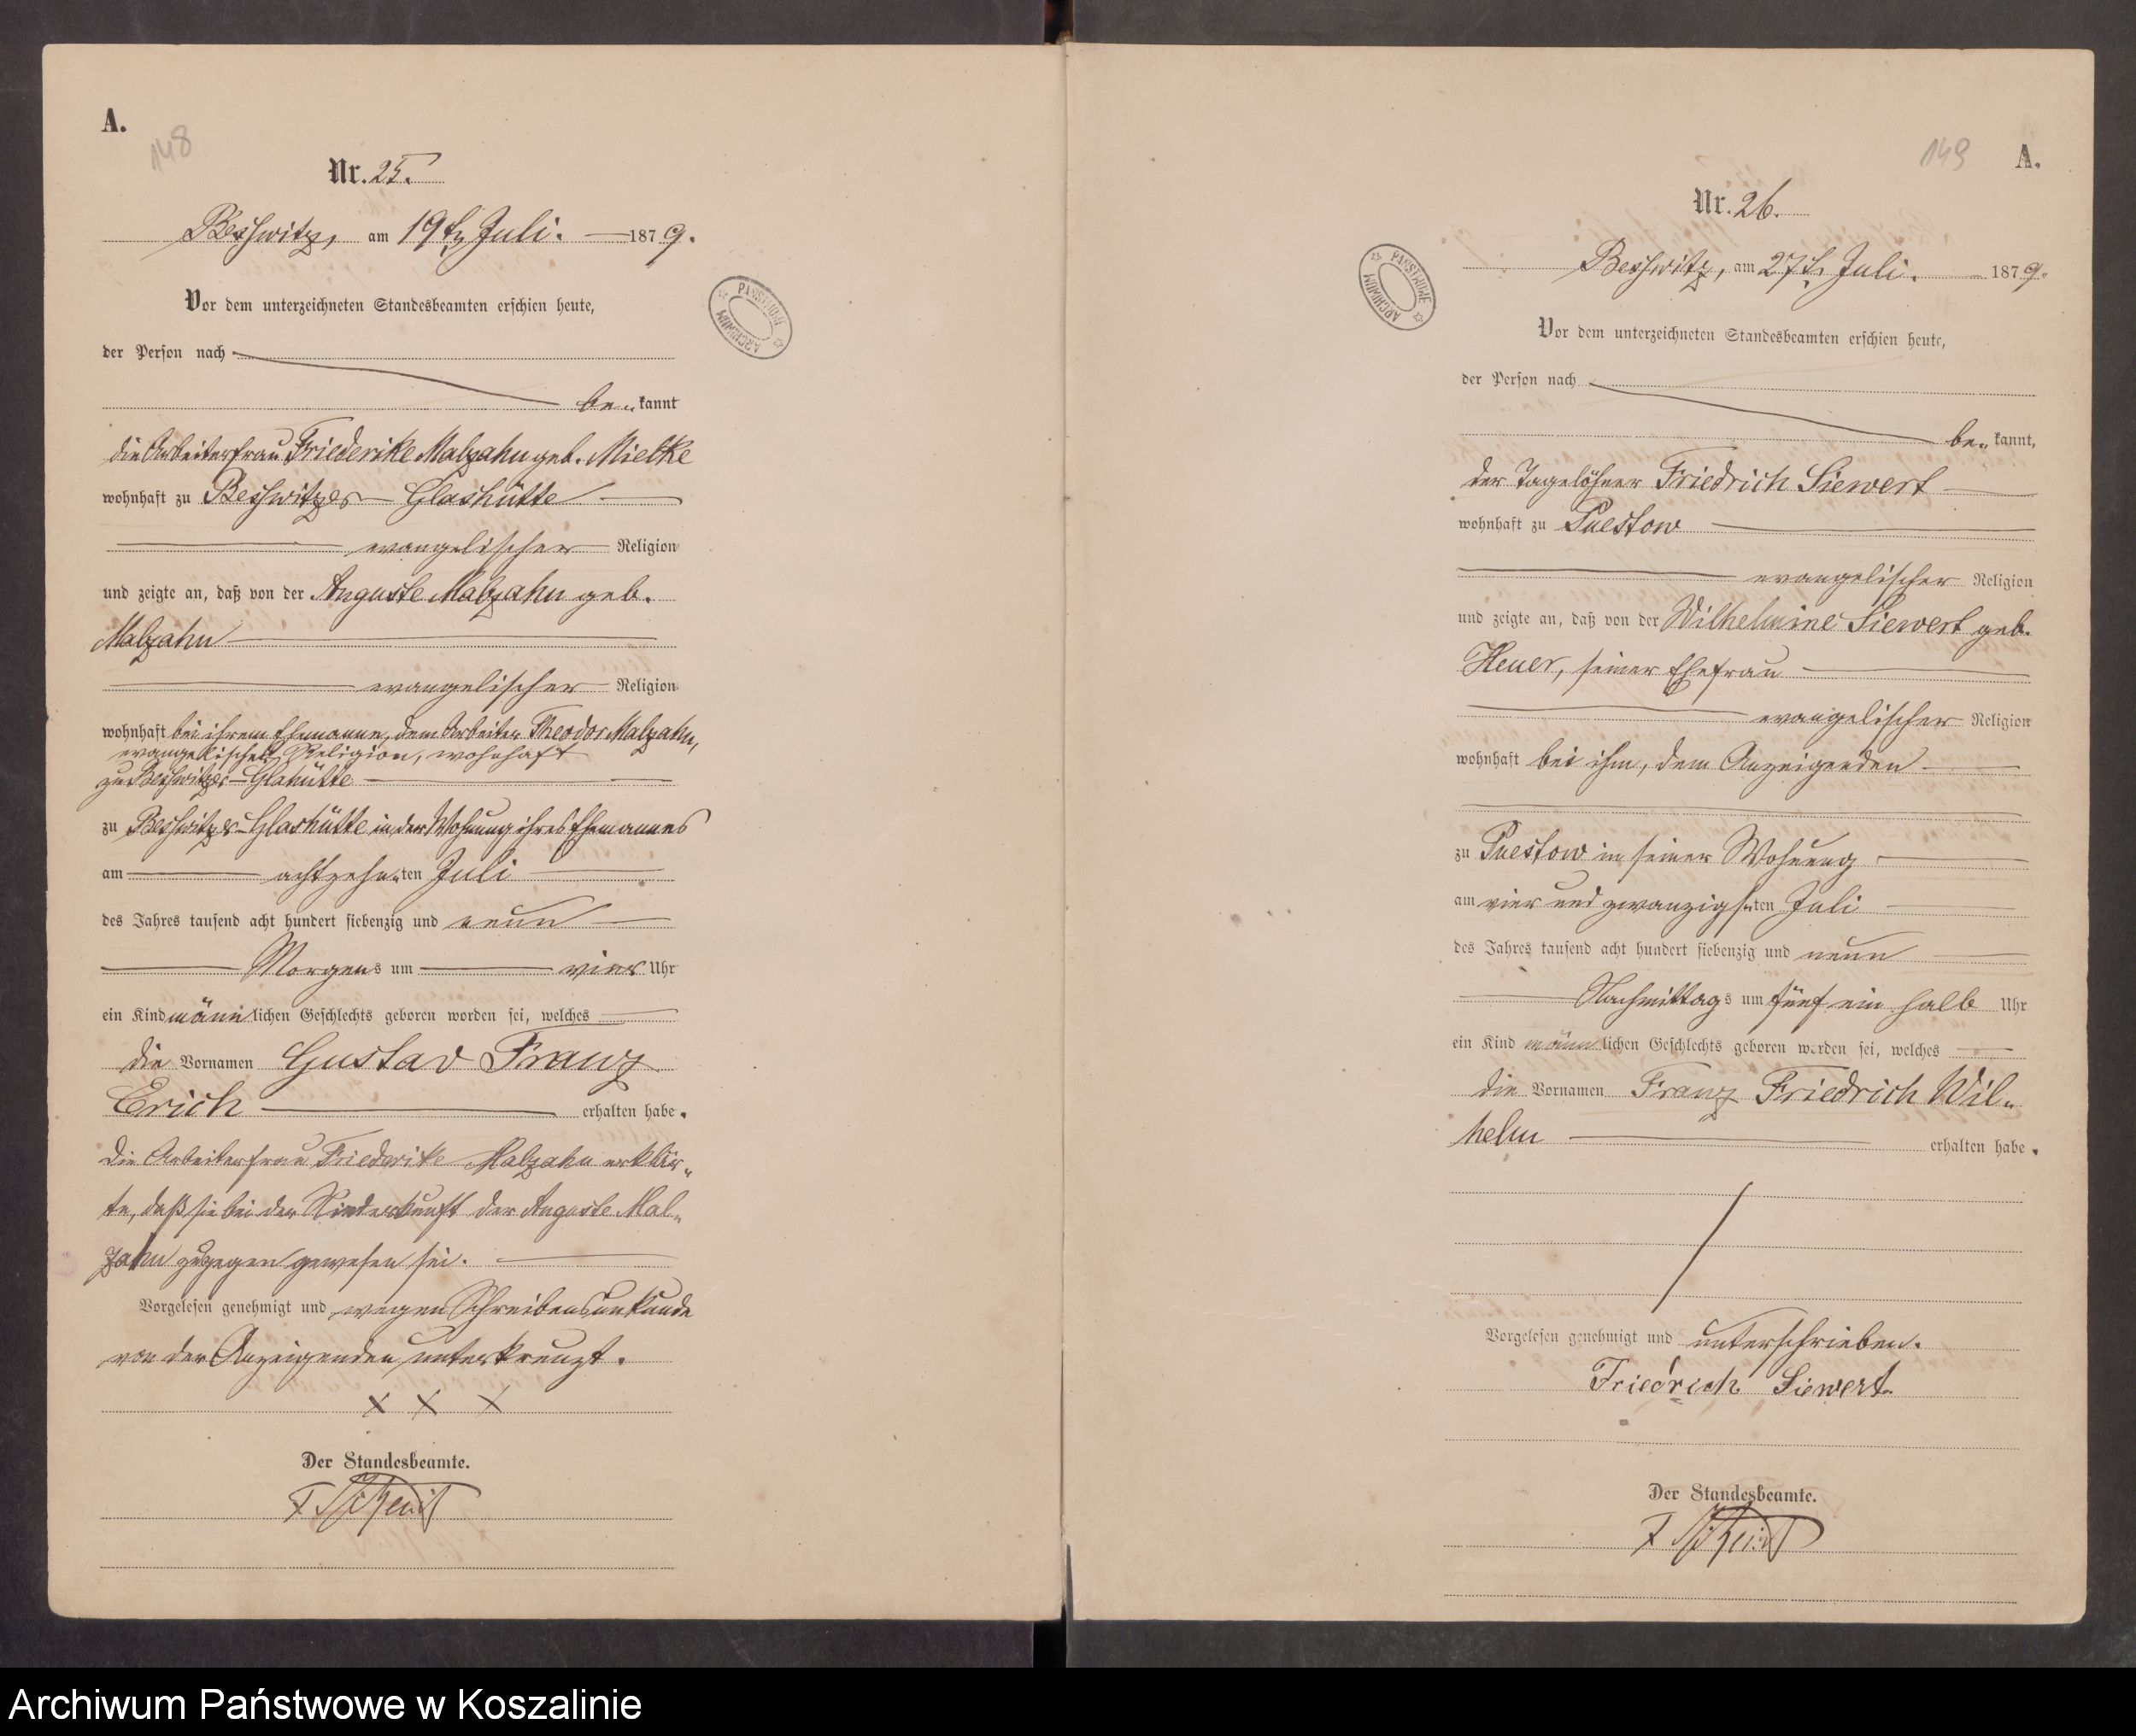 A.
148
Nr. 25.
Beßwitz, am 19t. Juli. 1879.
Vor dem unterzeichneten Standesbeamten erschien heute,
der Person nach
be„kannt
die Arbeiterfrau Friederike Malzahn geb. Mielke
wohnhaft zu Beßwitzer-Glashütte
evangelischer Religion
und zeigte an, daß von der Auguste Malzahn geb.
Malzahn
evangelischer Religion
wohnhaft bei ihrem Ehemanne, dem Arbeiter Theodor Malzahn,
evangelischer Religion, wohnhaft
zu Beßwitzer-Glahütte
zu Beßwitzer-Glashütte in der Wohnung ihres Ehemannes
am achtzehn„ten Juli
des Jahres tausend acht hundert siebenzig und neun
Morgens um vier Uhr
ein Kind männlichen Geschlechts geboren worden sei, welches
die Vornamen Gustav Franz
Erich erhalten habe.
Die Arbeiterfrau Friederike Malzahn erklär„
te, daß sie bei der Niederkunft der Auguste Mal„
zahn zugegen gewesen sei.
Vorgelesen genehmigt und wegen Schreibensunkunde
von der Anzeigenden unterkreuzt.
x x x
Der Standesbeamte.
149
A.
Nr. 26.
Beßwitz, am 27t. Juli. 1879.
Vor dem unterzeichneten Standesbeamten erschien heute,
der Person nach
be„kannt,
der Tagelöhner Friedrich Siewert
wohnhaft zu Puestow
evangelischer Religion
und zeigte an, daß von der Wilhelmine Siewert geb.
Heuer, seiner Ehefrau
evangelischer Religion
wohnhaft bei ihm, dem Anzeigenden
zu Puestow in seiner Wohnung
am vier und zwanzigs„ten Juli
des Jahres tausend acht hundert siebenzig und neun
Nachmittags um fünf ein halb Uhr
ein Kind männlichen Geschlechts geboren worden sei, welches
die Vornamen Franz Friedrich Wil„
helm erhalten habe.
Vorgelesen genehmigt und unterschrieben.
Friedrich Siewert
Der Standesbeamte.
ARCHIWUM PAŃSTWOWE
ARCHIWUM PAŃSTWOWE
Archiwum Państwowe w Koszalinie